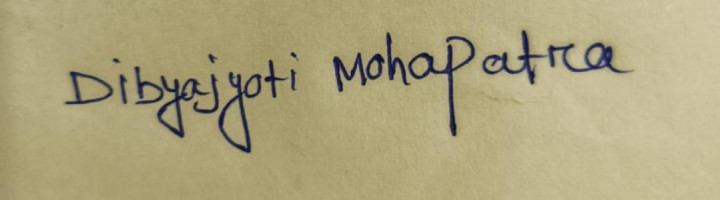 Dibyajyoti Mohapatra